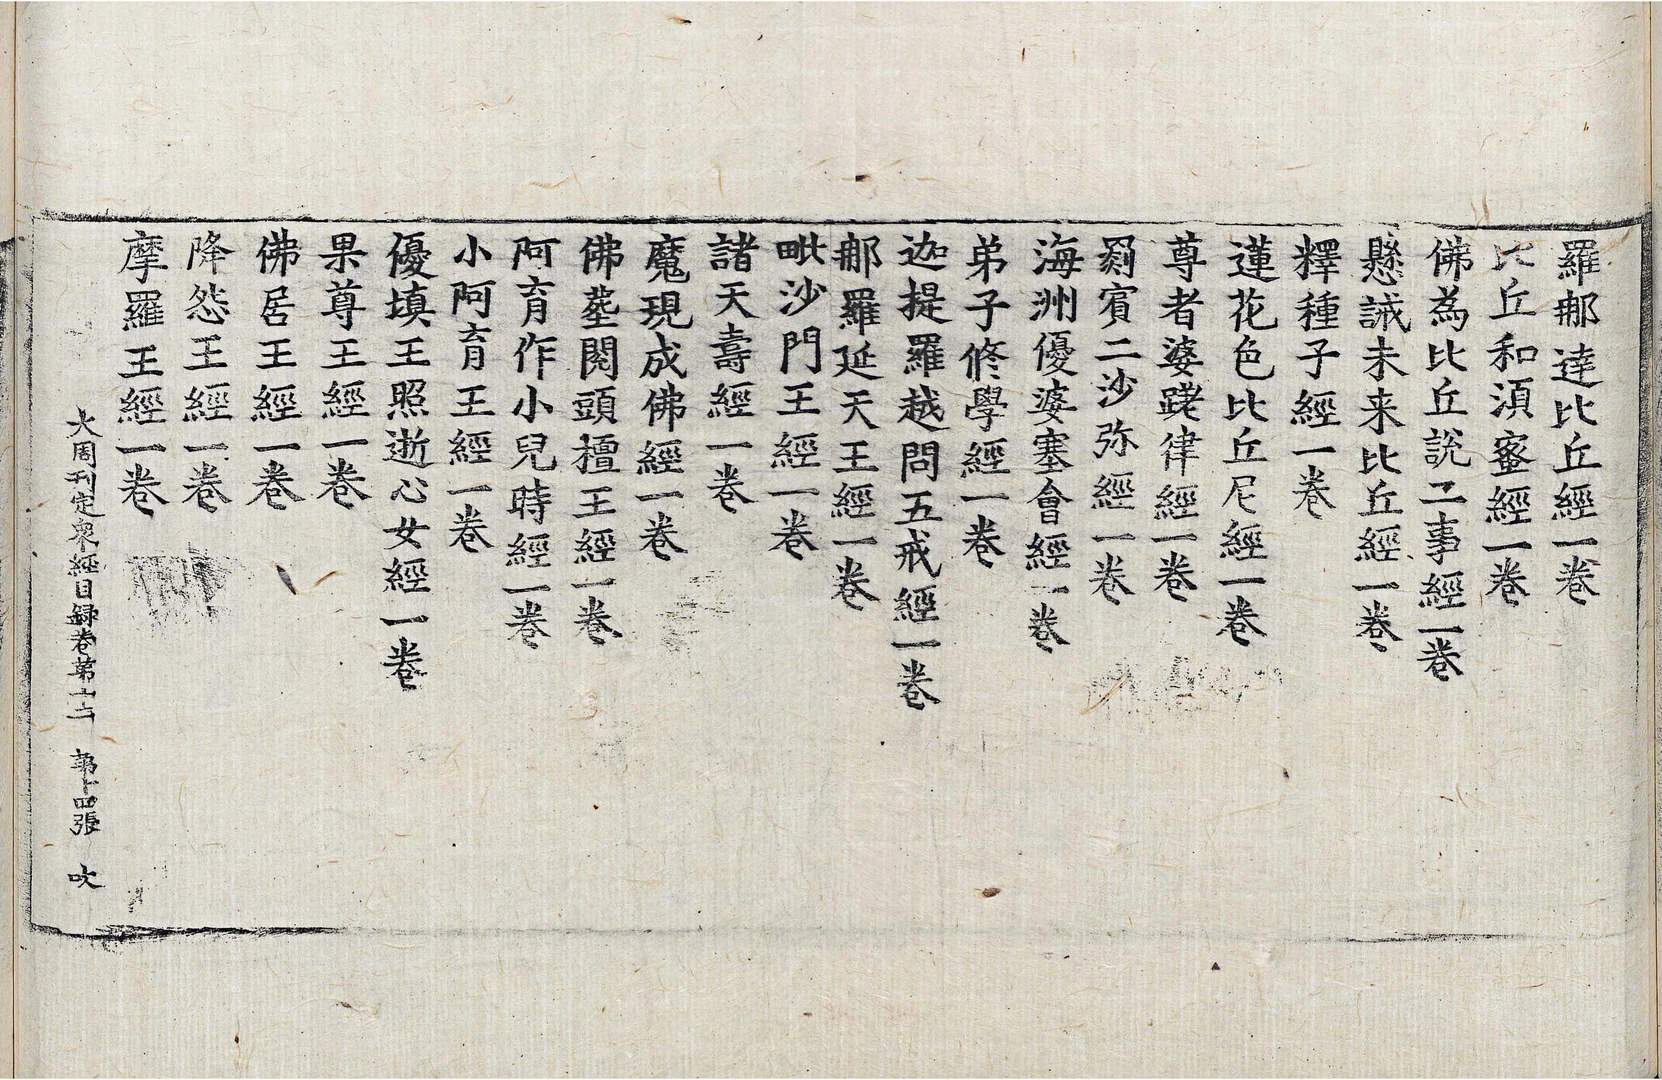 羅郍達比丘經一卷
比丘和湏蜜經一卷
佛為比丘說二事經一卷
懸誡未来比丘經一卷
釋種子經一卷
蓮花色比丘尼經一卷
尊者婆蹉律經一卷
罽賓二沙弥經一卷
海洲優婆塞會經一卷
弟子俢學經一卷
迦提羅越問五戒經一卷
郍羅延天王經一卷
毗沙門王經一卷
諸天壽經一卷
魔現成佛經一卷
佛塟閱頭檀王經一卷
阿育作小兒時經一卷
小阿育王經一卷
優填王照逝心女經一卷
果尊王經一卷
佛居王經一卷
降怨王經一卷
摩羅王經一卷
大周刊定衆經目録卷第十二 第十四張 吹